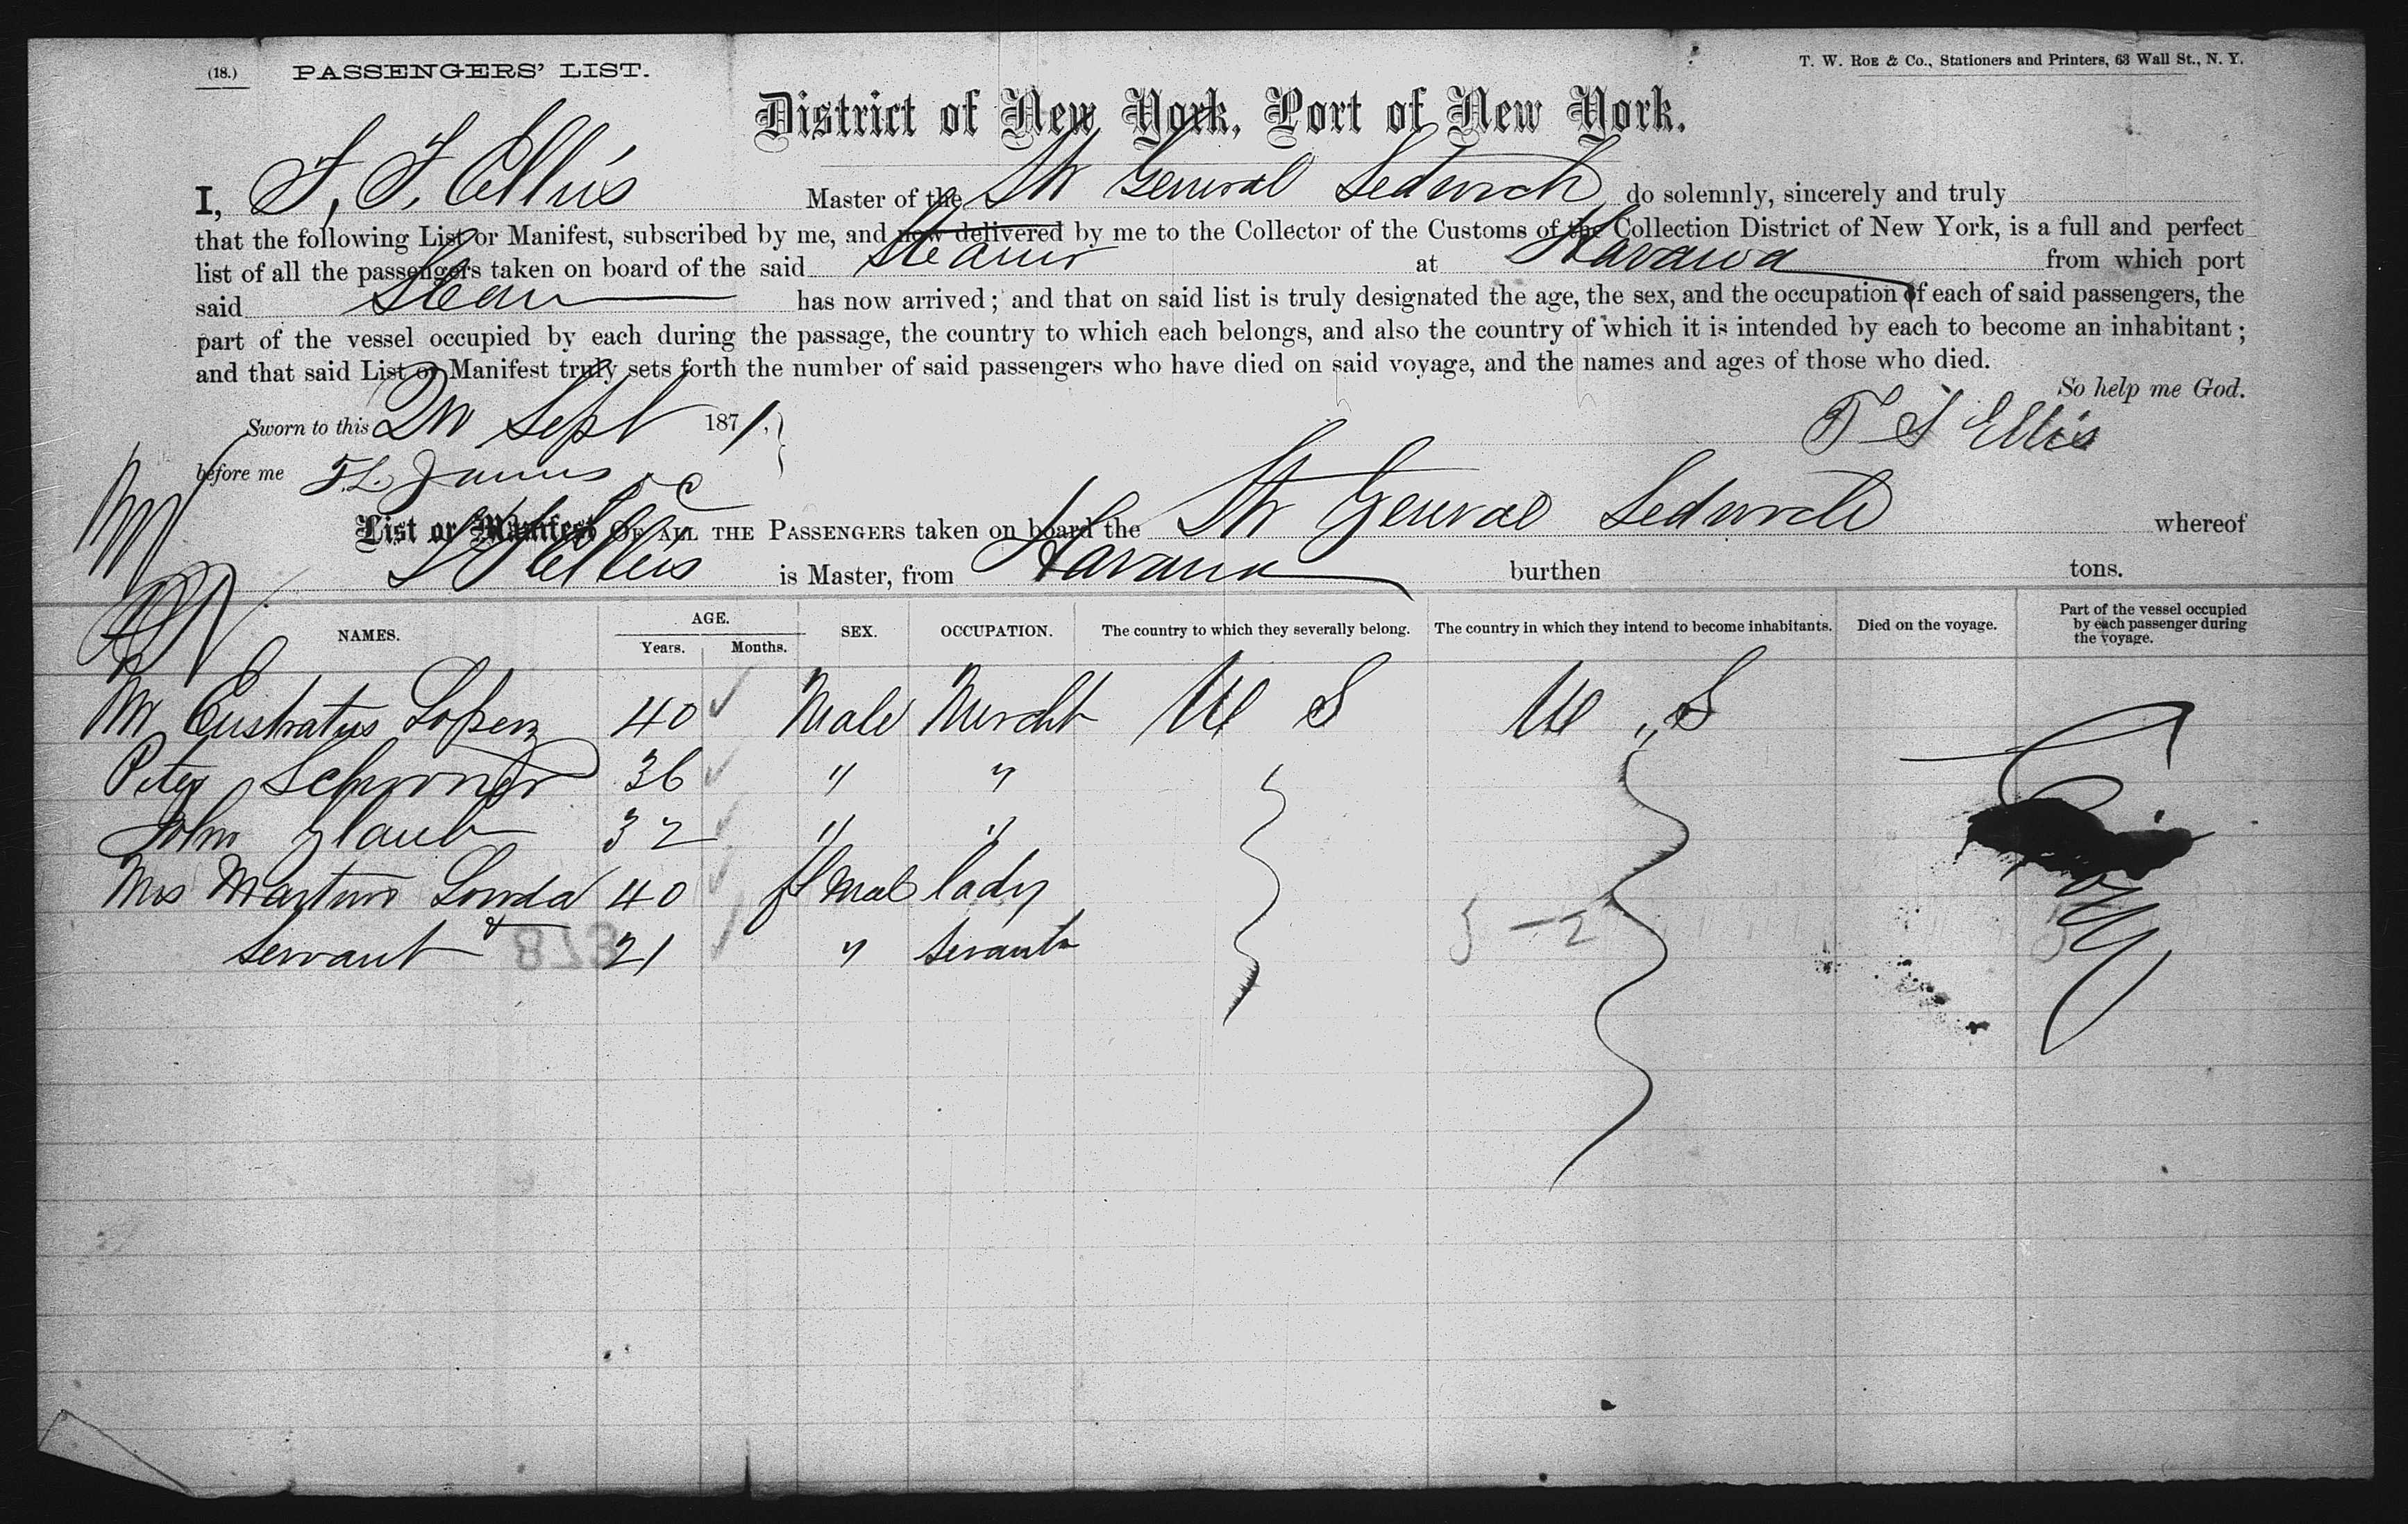 (18.) PASSENGERS' LIST. T. W. ROE & Co., Stationers and Printers, 63 Wall St., N. Y.
District of New York, Port of New York.
I, T. S. Ellis Master of the Str General Sedwick do solemnly, sincerely and truly
that the following List or Manifest, subscribed by me, and now delivered by me to the Collector of the Customs of the Collection District of New York, is a full and perfect
list of all the passengers taken on board of the said Steamr at Havana from which port
said Steamr has now arrived; and that on said list is truly designated the age, the sex, and the occupation of each of said passengers, the
part of the vessel occupied by each during the passage, the country to which each belongs, and also the country of which it is intended by each to become an inhabitant;
and that said List or Manifest truly sets forth the number of said passengers who have died on said voyage, and the names and ages of those who died.
So help me God.
Sworn to this Sept 1871, T S Ellis
before me T.L. James
List or Manifest OF ALL THE PASSENGERS taken on board the Str General Sedwick whereof
T S Ellis is Master, from Havana burthen tons.
NAMES. AGE. Years. Months. SEX. OCCUPATION. The country to which they severally belong. The country in which they intend to become inhabitants. Died on the voyage. Part of the vessel occupied by each passenger during the voyage.
Mr Lopez 40 Male Mercht U S U S
Peter 36 " "
John Glaub 32 " "
Mrs 40 female lady
& servant 21 " Servant 5 - 2
878